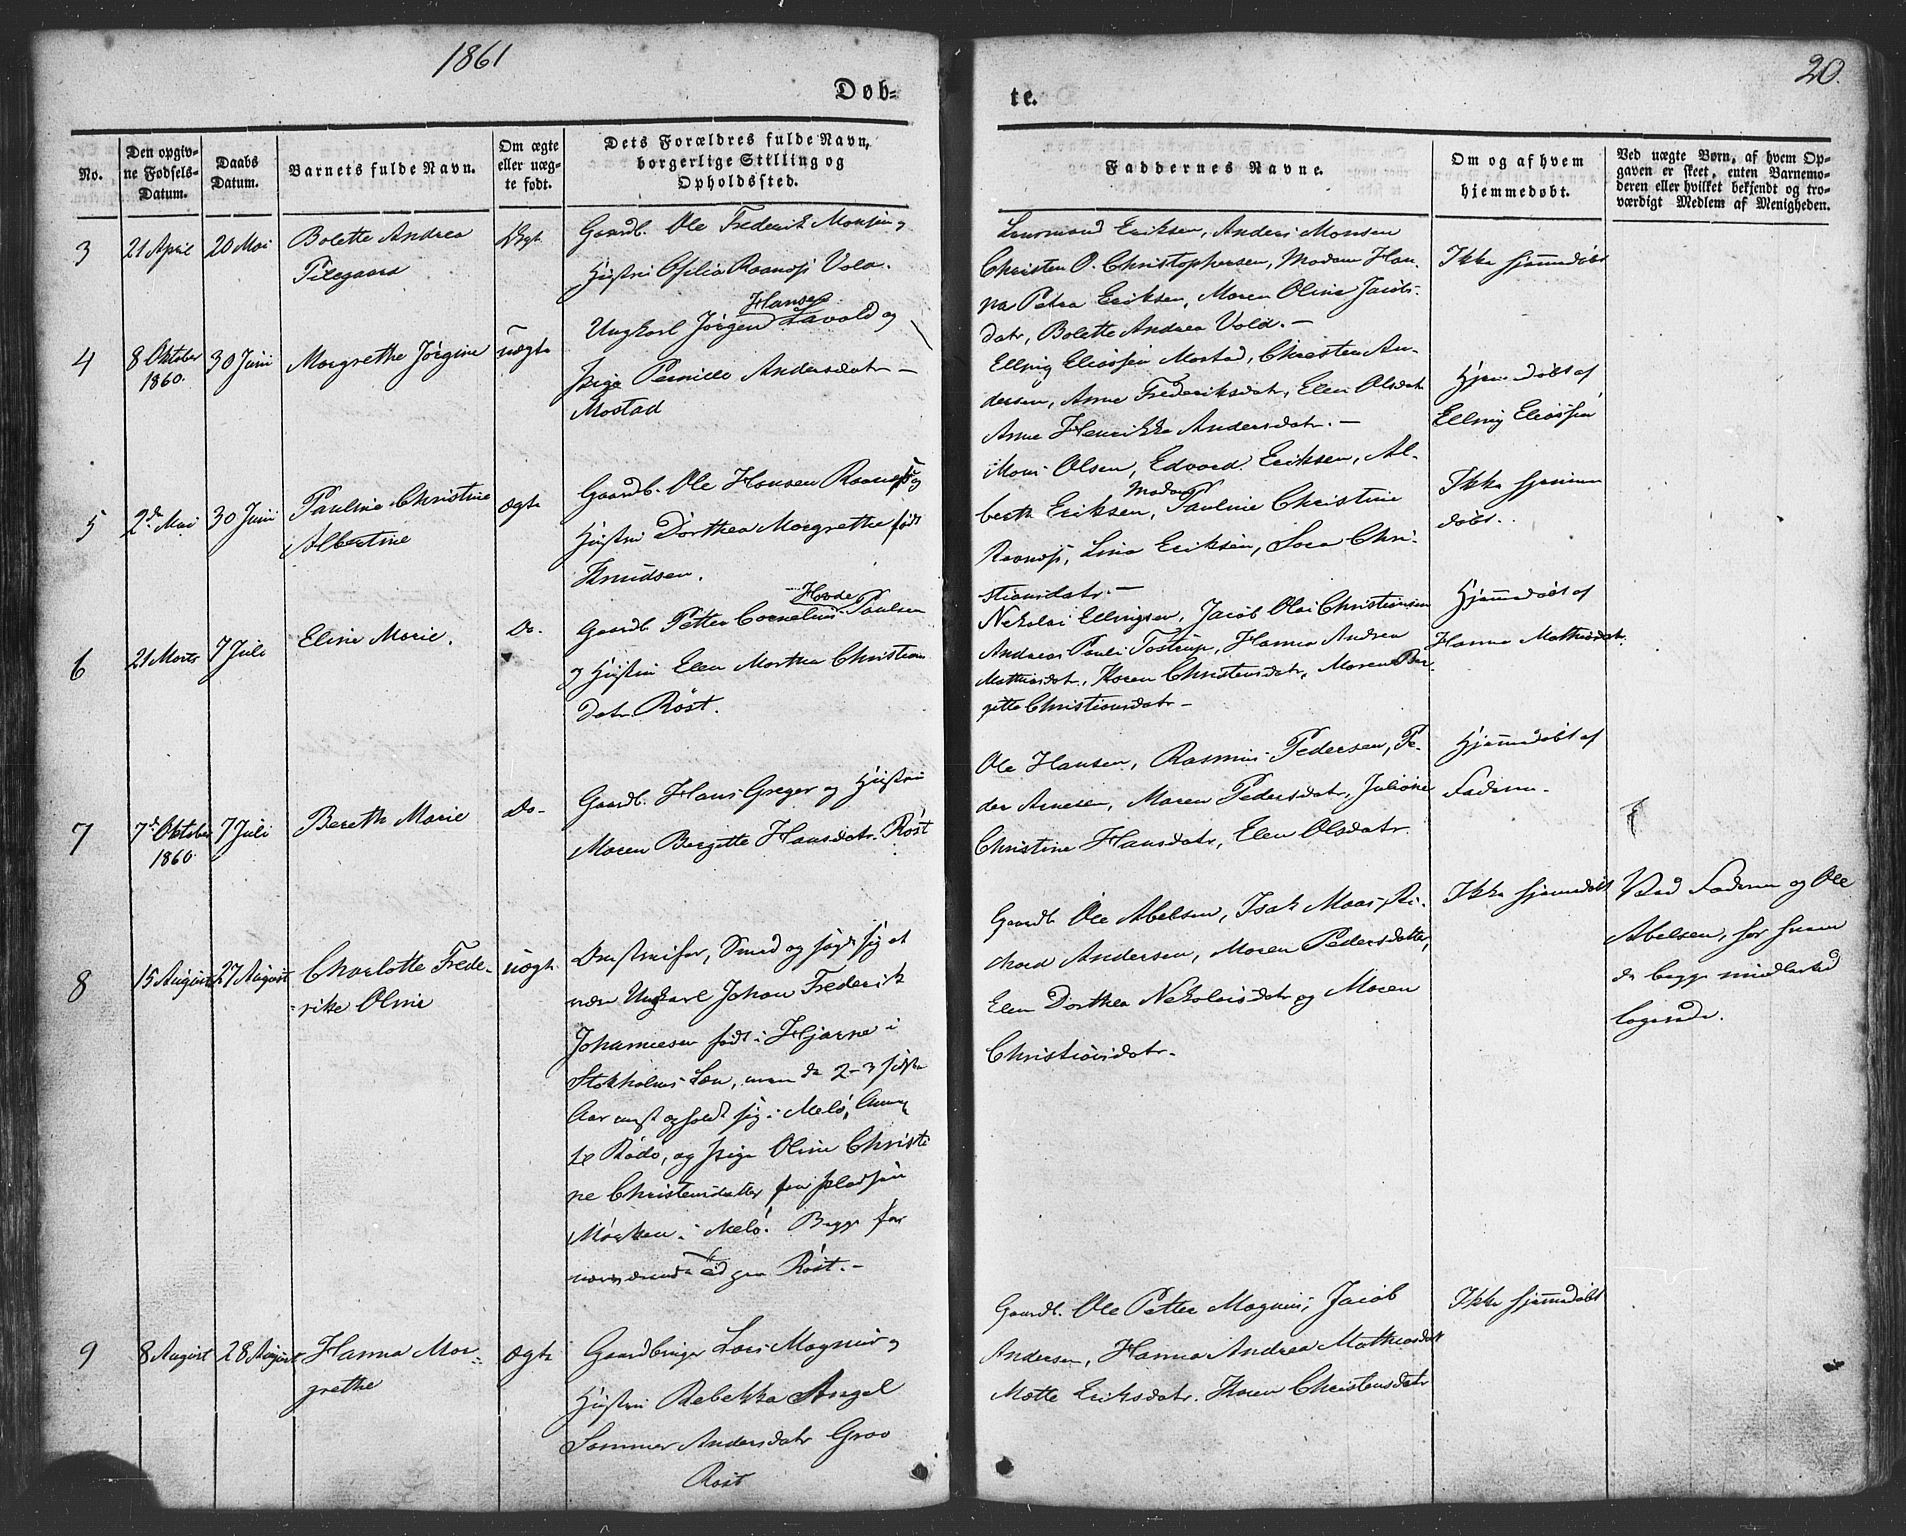 1861
20.
Døb-
te.
No.
Den opgiv-
ne Fødsels-
Datum.
Daabs
Datum.
Barnets fulde Navn.
Om ægte
eller uæg-
te født.
Dets Forældres fulde Navn,
borgerlige Stilling og
Opholdssted.
Faddernes Navne.
Om og af hvem
hjemmedøbt.
Ved uægte Børn, af hvem Op-
gaven er skeet, enten Barnemo-
deren eller hvilket bekjendt og tro-
værdigt Medlem af Menigheden.
3
21 April
20 Mai
Bolette Andrea
Ægte
Gaardb. Ole Frederik Monsen og
Hustru Ofelia Raanæs Vola.
Eriksen, Anders Monsen
Christen P. Christophersen, Madam Han-
na Petra Eriksen, Maren Oline Jacobs-
datr, Bolette Andrea Vold. –
Ikke hjemmedøbt
4
8 Oktober
1860.
30 Juni
Margrethe Jørgine
uægte
Hansen
Ungkarl Jørgen Lavold og
Pige Pernille Andersdatr –
Mostad
Elling Eliassen Mostad, Christen An-
dersen, Anne Frederiksdatr, Elen Olsdatr
Anne Henrikke Andersdatr. –
Hjemmedøbt af
Elling Eliassen
5
2den Mai
30 Juni
Pauline Christine
Albertine
ægte
Gaardb. Ole Hansen Raanæs og
Hustru Dorthea Margrethe født
Knudsen.
Mons Olsen, Edvard Eriksen, Al-
Madam
berth Eriksen, Pauline Christine
Raanæs, Lina Eriksen, Sara Chri-
stiansdatr. –
Ikke hjemme
døbt.
6
21 Marts
7 Juli
Eline Marie.
Do.
Hovde
Gaardb. Petter Cornelius Paulsen
og Hustru Elen Marthea Christian
datr Røst.
Nekolai Ellingsen, Jacob Olai Christiansen
Andreas Pauli Tostrup, Hanna Andrea
Mathiasdatr, Karen Christensdatr, Maren Ber-
gitte Christiansdatr –
Hjemmedøbt af
Hanna Mathiasdatr.
7
7de Oktober
1860.
7 Juli
Bereth Marie
Do–
Gaardb. Hans Greger og Hustru
Maren Bergitte Hansdatr. Røst
Ole Hansen, Rasmus Pedersen, Pe-
der Arnesen, Maren Pedersdatr, Juliane
Christine Hansdatr, Elen Olsdatr
Hjemmedøbt af
Faderen.
8
15 August
27 August
Charlotte Frede-
rikke Oline
uægte
Smed og sagde sig at
være Ungkarl Johan Frederik
Johannesen født i Hjarne i
Stokholms Læn, men de 2–3 sidste
Aar mest opholdt sig i Melø, Annex
til Rødø, og Pige Oline Christi
ne Christensdatter fra Pladsen
Mørken i Melø. Begge for
nærværende paa Røst. –
Gaardb. Ole Abelsen, Isak Maas, Ri-
chard Andersen, Maren Pedersdatter,
Elen Dorthea Nekolaisdatr og Maren
Christiansdatr.
Ikke hjemmedøbt
Ved Faderen og Ole
Abelsen, hos hvem
de begge midlertid
logerede.
9
8 August
28 August
Hanna Mar-
grethe
ægte
Gaardbruger Lars Magnus og
Hustru Rebekka Angel
Sommer Andersdatr Grov
Røst
Gaardb. Ole Petter Magnus, Jacob
Andersen, Hanna Andrea Mathiasdatr
Mætte Eriksdatr. Karen Christensdatr
Ikke hjemmedøbt